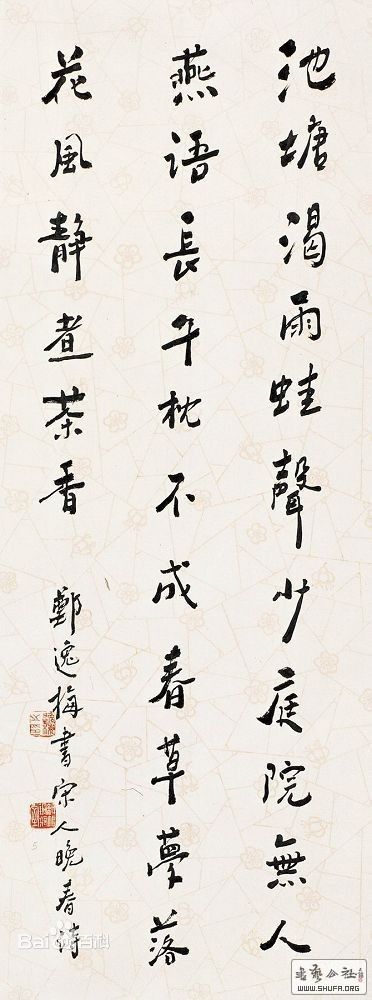 池塘渴雨蛙聲少庭院無人
燕語長午枕不成春草夢落
花風靜煮茶香
鄭逸梅書宋人晚春詩
Bai百科
www.SHUFA.ORG